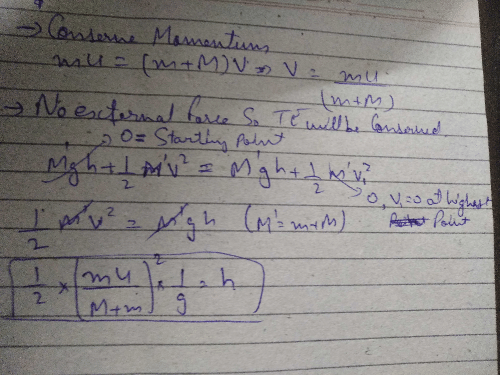 → Conserve Momentum
mu = (m+M)V ⇒ V = mu / (m+M)
→ No external force So TE will be Conserved.
0 = Starting Point
M'gh + 1/2 M'V² = M'gh + 1/2 M'V₁²
0, V₁=0 at highest Point
1/2 M'V² = M'gh (M' = m+M)
1/2 × (mu / M+m)² × 1/g = h